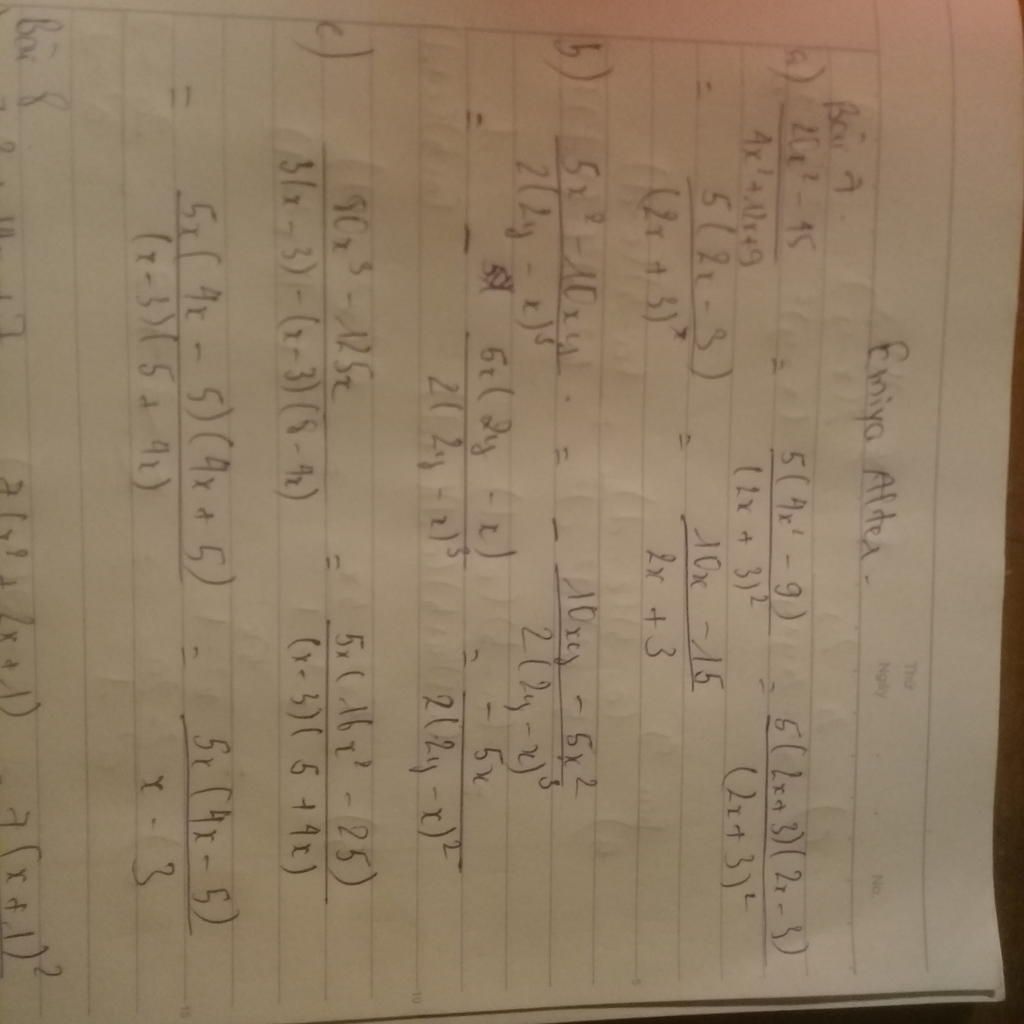 Thứ
Ngày No.
Emiya Alter.
Bài 7
a) 20x² - 45 / 4x² + 12x + 9 = 5(4x² - 9) / (2x + 3)² = 5(2x+3)(2x-3) / (2x+3)²
= 5(2x - 3) / (2x + 3) = 10x - 15 / 2x + 3
b) 5x² - 10xy / 2(2y - x)³ = - 10xy - 5x² / 2(2y - x)³
= - 5x(2y - x) / 2(2y - x)³ = - 5x / 2(2y - x)²
c) 80x³ - 125x / 3(x - 3) - (x - 3)(8 - 4x) = 5x(16x² - 25) / (x - 3)(5 + 4x)
= 5x(4x - 5)(4x + 5) / (x - 3)(5 + 4x) = 5x(4x - 5) / x - 3
Bài 8
7(x² + 2x + 1) = 7(x + 1)²
5
10
15